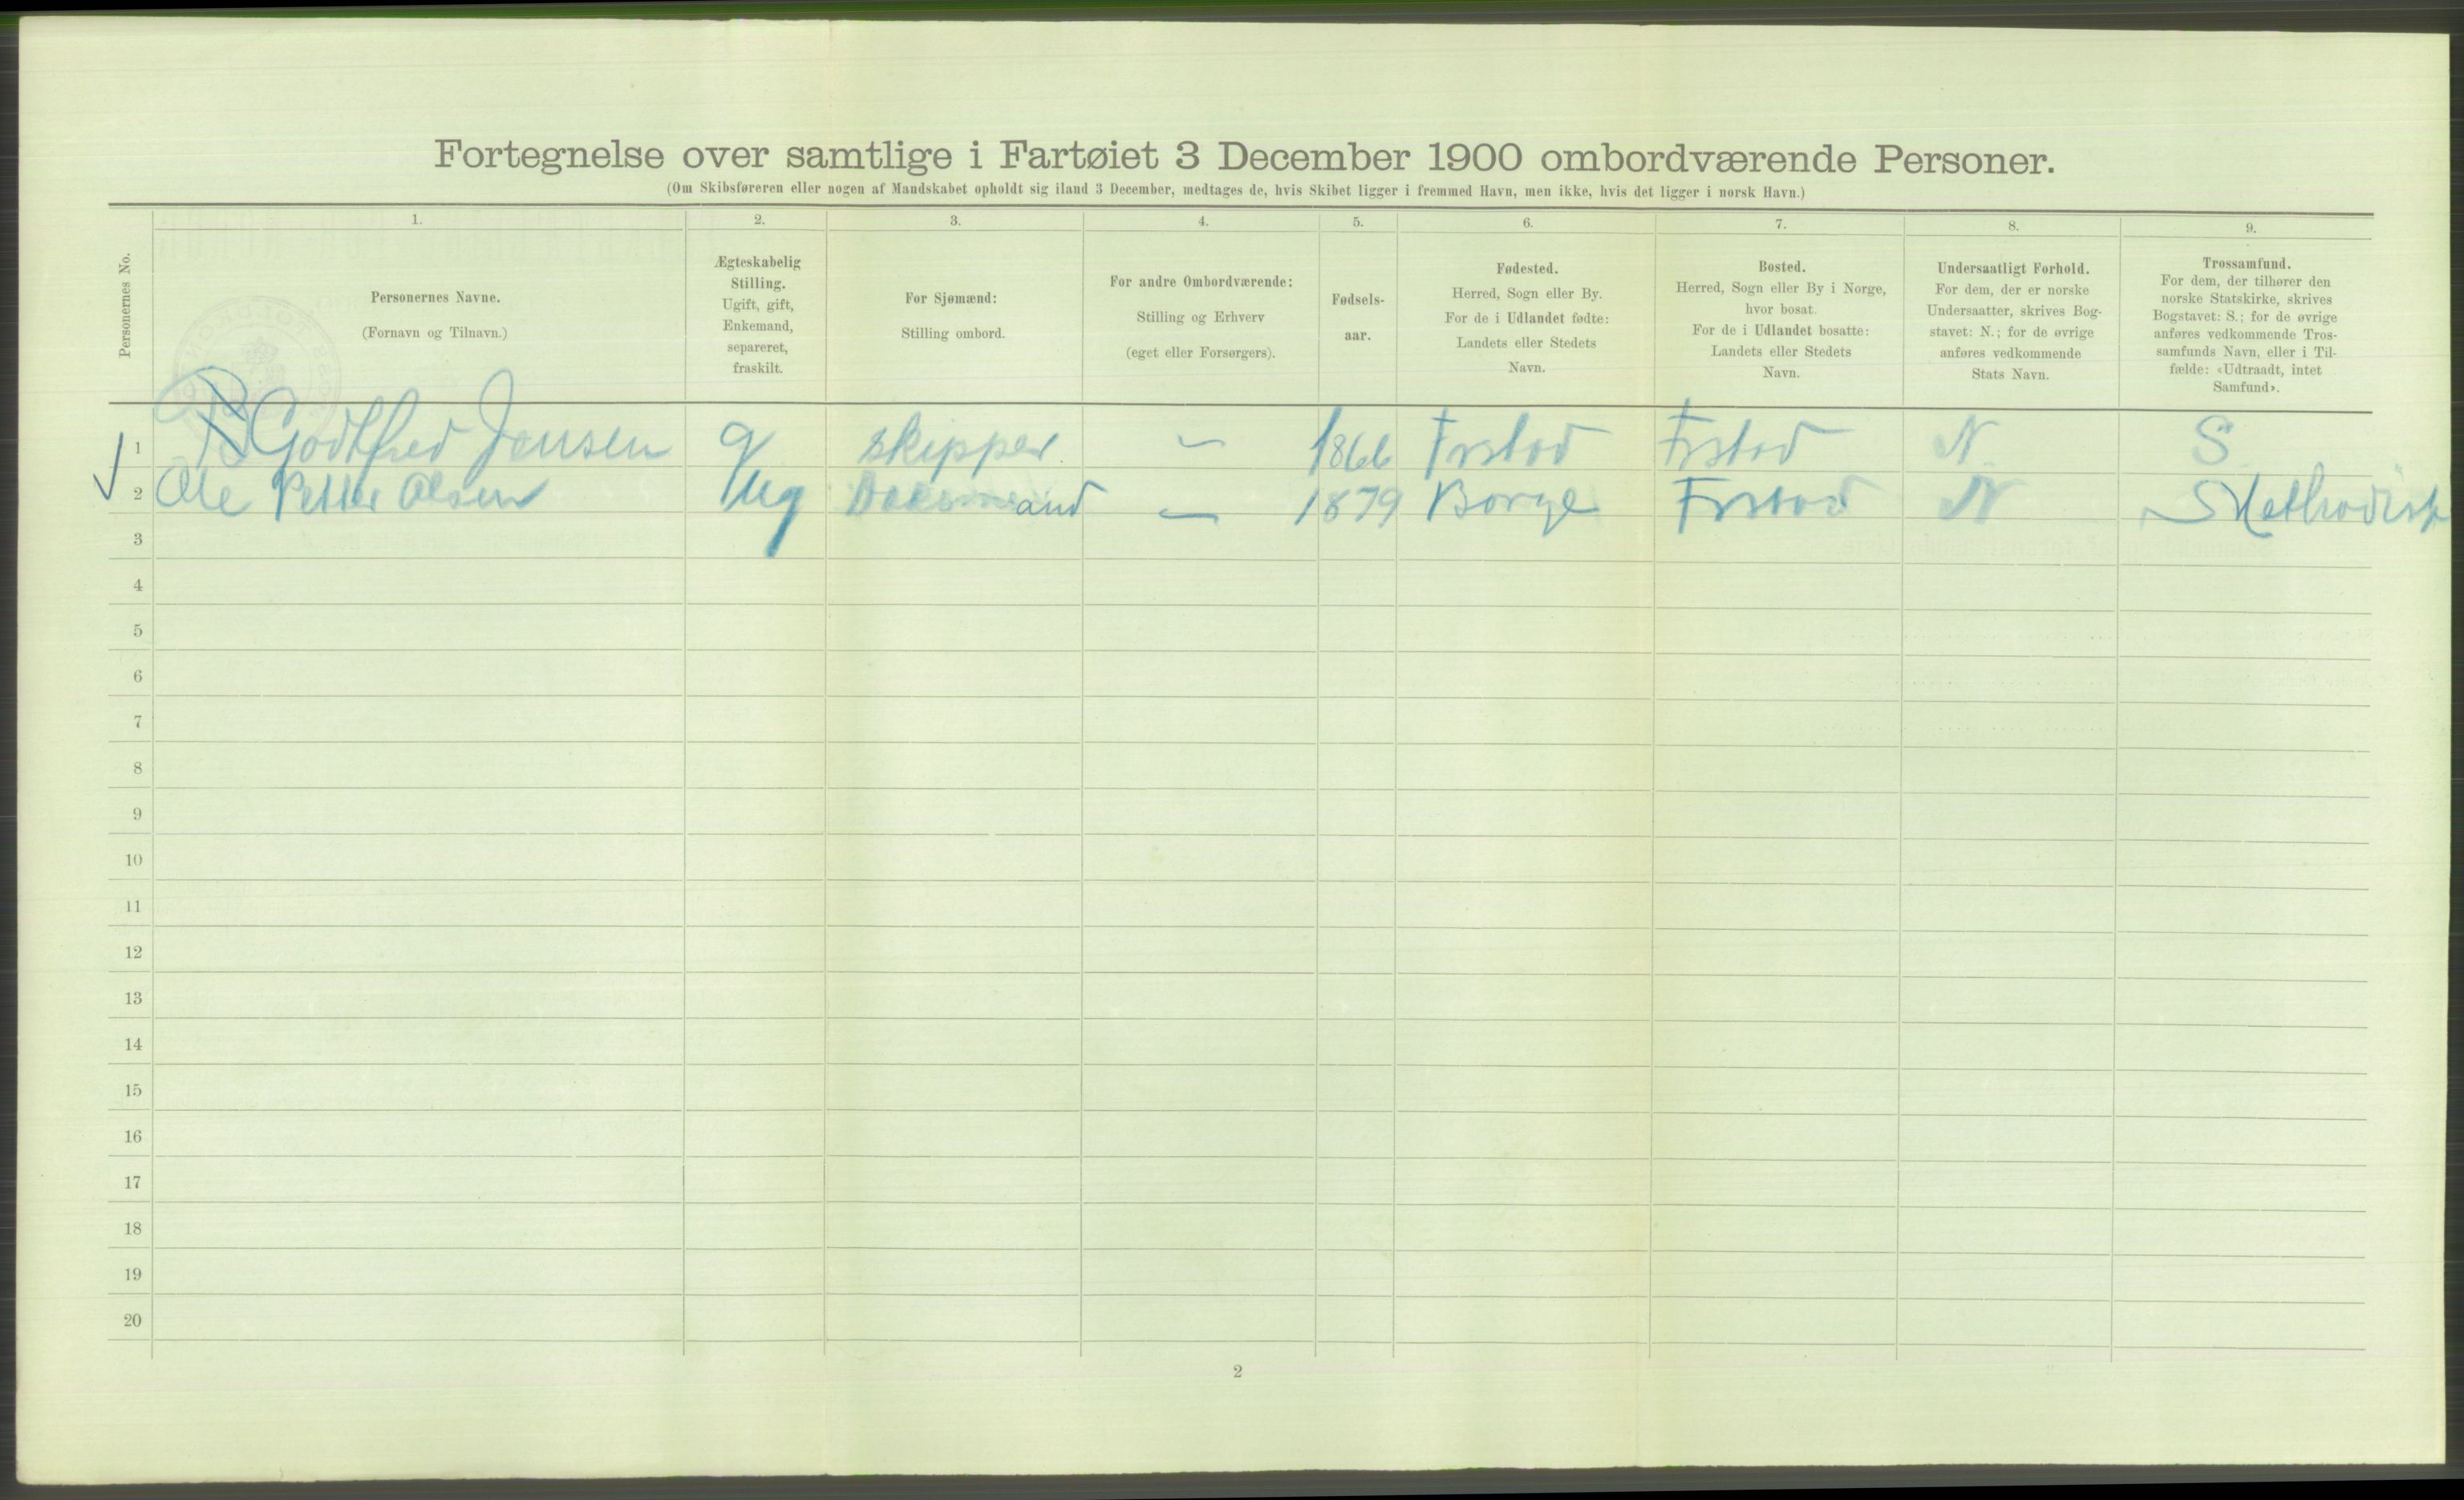 Fortegnelse over samtlige i Fartøiet 3 December 1900 ombordværende Personer.
(Om Skibsføreren eller nogen af Mandskabet opholdt sig iland 3 December, medtages de, hvis Skibet ligger i fremmed Havn, men ikke, hvis det ligger i norsk Havn.)
Personernes No.
1.
Personernes Navne.
(Fornavn og Tilnavn.)
2.
Ægteskabelig
Stilling.
Ugift, gift,
Enkemand,
separeret,
fraskilt.
3.
For Sjømænd:
Stilling ombord.
4.
For andre Ombordværende:
Stilling og Erhverv
(eget eller Forsørgers).
5.
Fødsels-
aar.
6.
Fødested.
Herred, Sogn eller By.
For de i Udlandet fødte:
Landets eller Stedets
Navn.
7.
Bosted.
Herred, Sogn eller By i Norge,
hvor bosat.
For de i Udlandet bosatte:
Landets eller Stedets
Navn.
8.
Undersaatligt Forhold.
For dem, der er norske
Undersaatter, skrives Bog-
stavet: N.; for de øvrige
anføres vedkommende
Stats Navn.
9.
Trossamfund.
For dem, der tilhører den
norske Statskirke, skrives
Bogstavet: S.; for de øvrige
anføres vedkommende Tros-
samfunds Navn, eller i Til-
fælde: «Udtraadt, intet
Samfund».
1 Godtfred Jensen g skipper – 1866 Frstad Frstad N. S
2 Ole Petter Olsen ug – 1879 Borge Frstad N Methodist
3
4
5
6
7
8
9
10
11
12
13
14
15
16
17
18
19
20
2